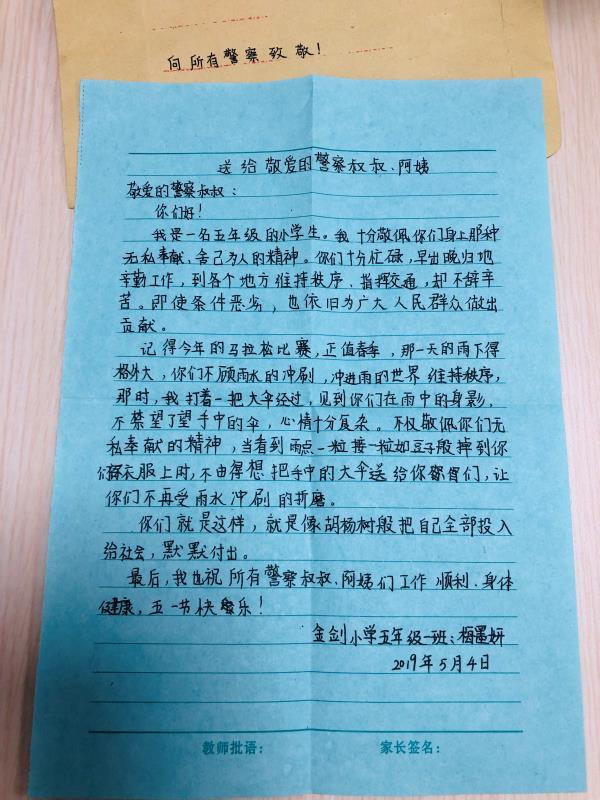 向所有警察致敬！
送给敬爱的警察叔叔、阿姨
敬爱的警察叔叔：
你们好！
我是一名五年级的小学生。我十分敬佩你们身上那种
无私奉献、舍己为人的精神。你们十分忙碌，早出晚归地
辛勤工作，到各个地方维持秩序、指挥交通，却不辞辛
苦。即使条件恶劣，也依旧为广大人民群众做出
贡献。
记得今年的马拉松比赛，正值春季，那一天的雨下得
格外大，你们不顾雨水的冲刷，冲进雨的世界维持秩序，
那时，我打着一把大伞经过，见到你们在雨中的身影，
不禁望了望手中的伞，心情十分复杂。不仅敬佩你们无
私奉献的精神，当看到雨点一粒接一粒如豆子般摔到你
们衣服上时，不由得想把手中的大伞送给你们，让
你们不再受雨水冲刷的折磨。
你们就是这样，就是像胡杨树般把自己全部投入
给社会，默默付出。
最后，我也祝所有警察叔叔、阿姨们工作顺利、身体
健康，五一节快乐！
金剑小学五年级一班：梅墨妍
2019年5月4日
教师批语： 家长签名：